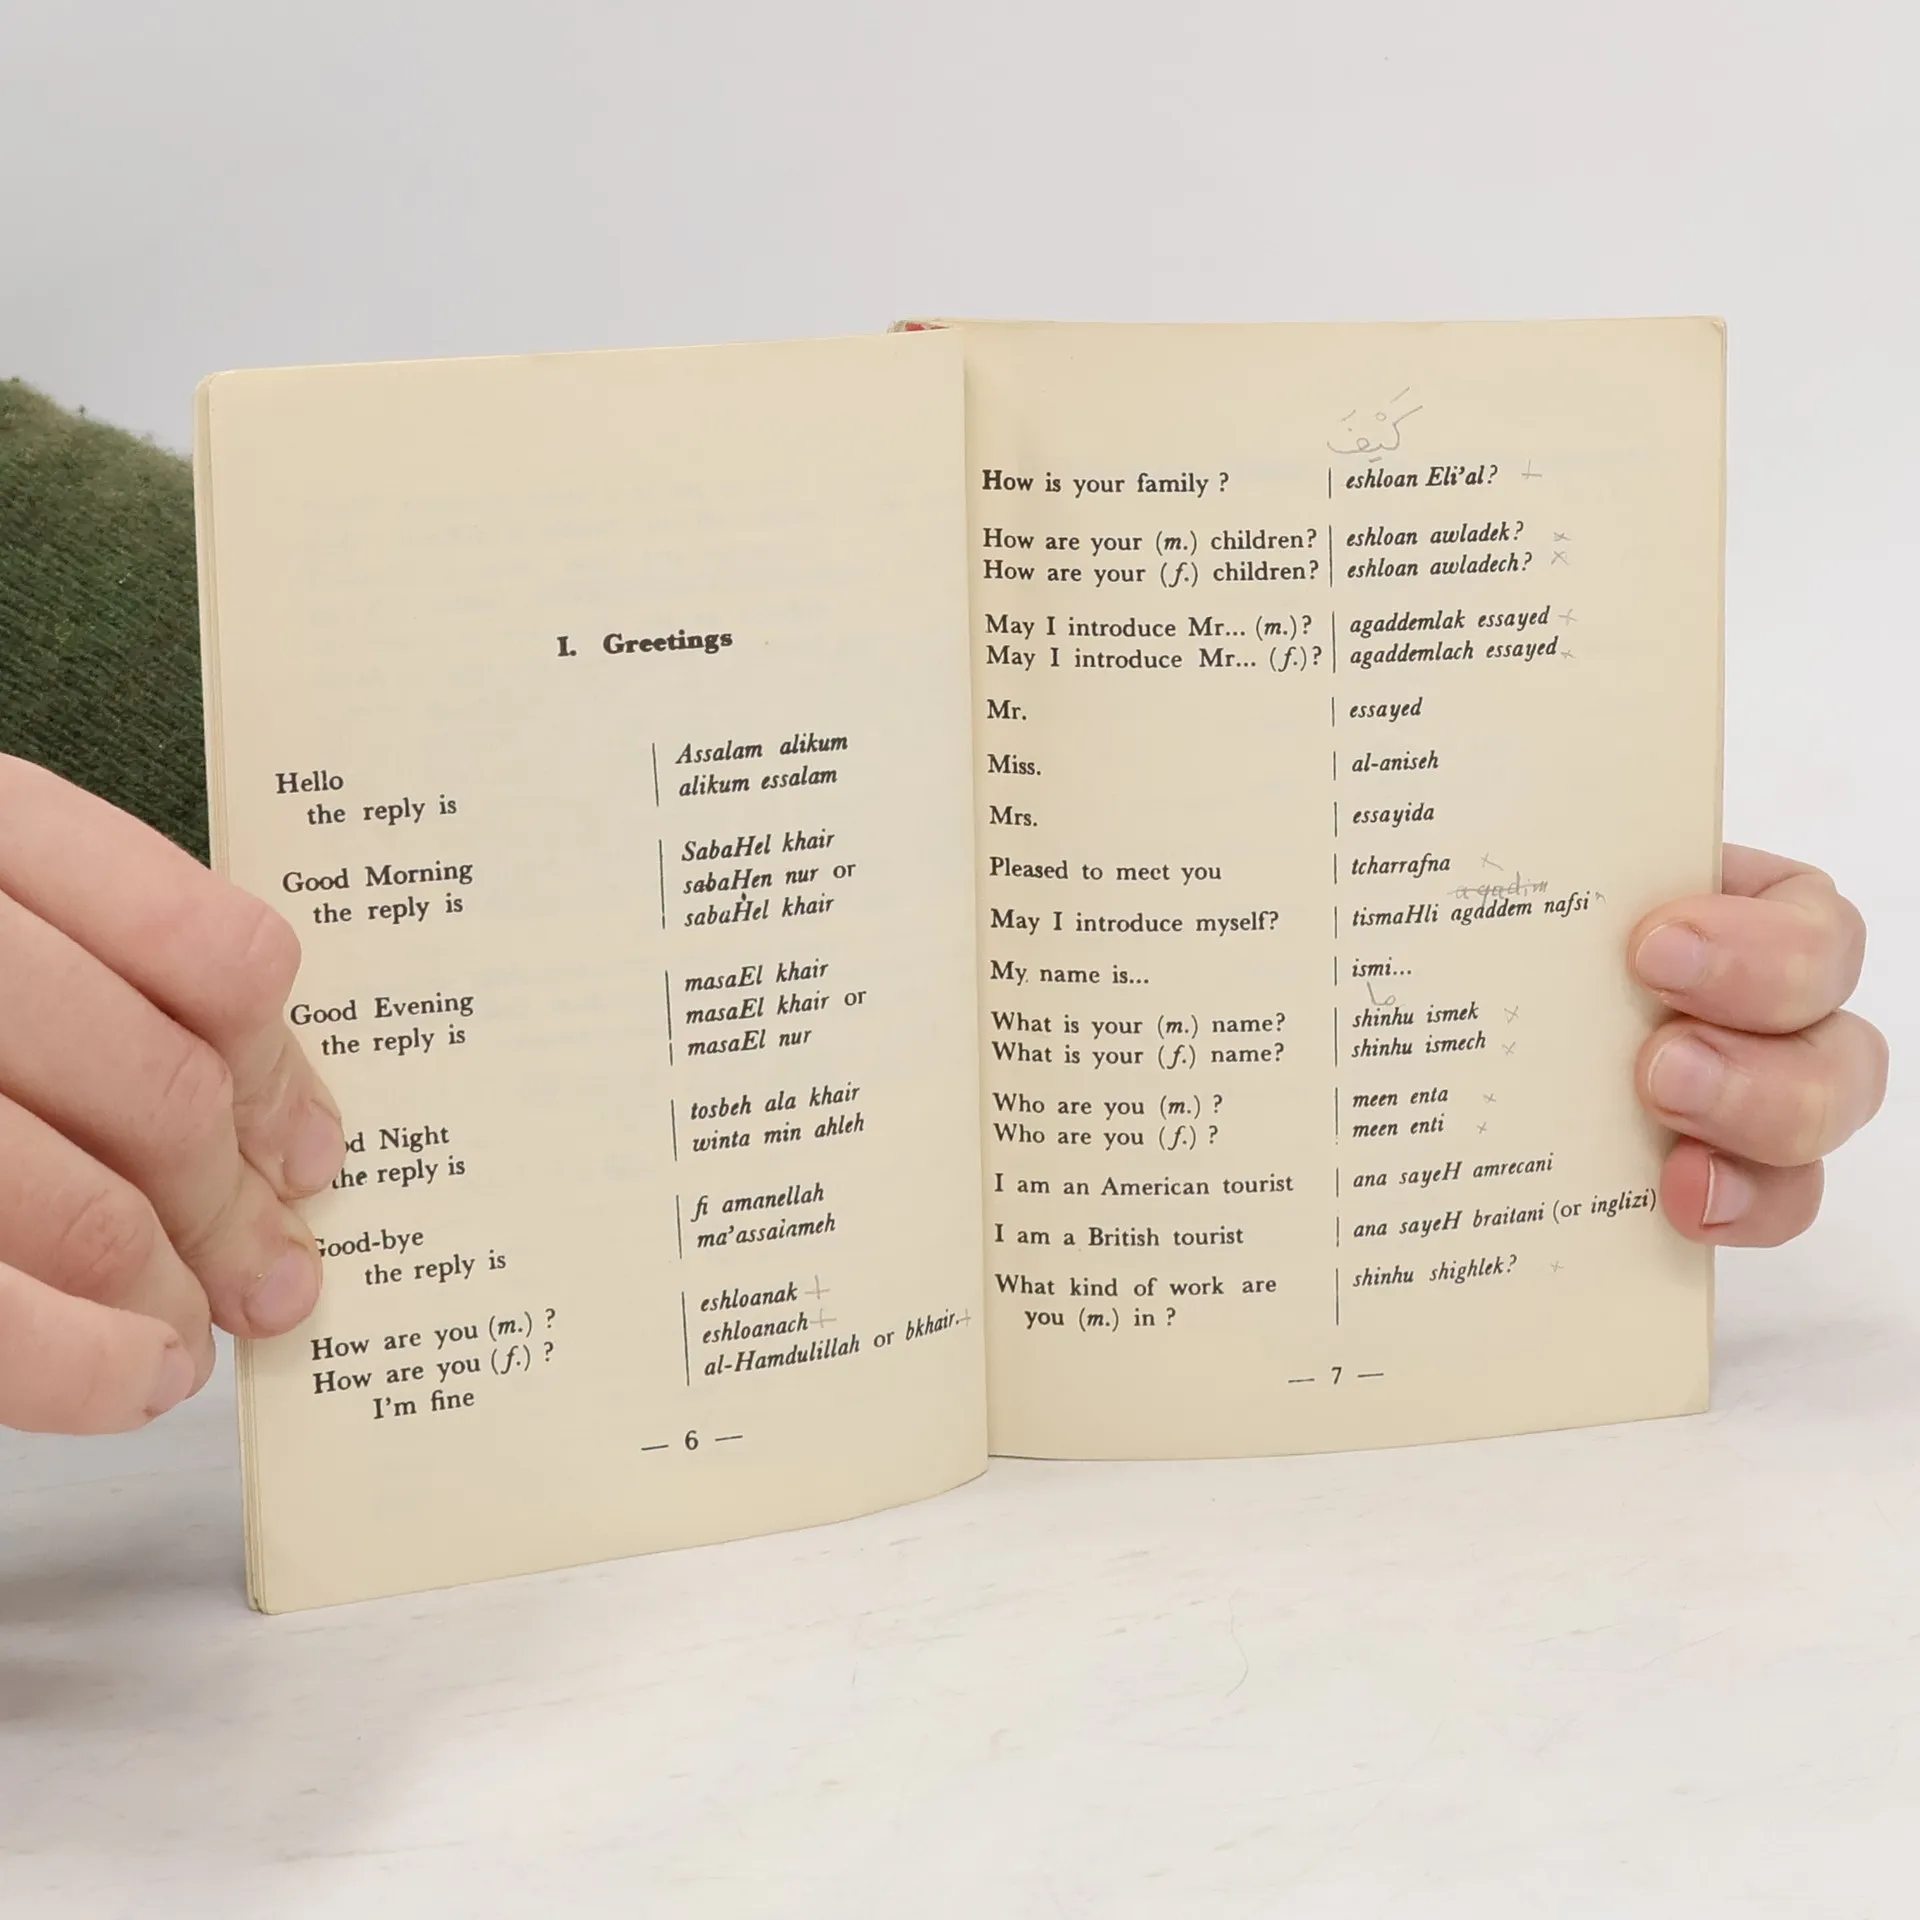 I. Greetings
Hello | Assalam alikum
the reply is | alikum essalam
Good Morning | SabaHel khair
the reply is | sabaHen nur or
sabaHel khair
Good Evening | masaEl khair
the reply is | masaEl khair or
masaEl nur
d Night | tosbeh ala khair
the reply is | winta min ahleh
Good-bye | fi amanellah
the reply is | ma'assalameh
How are you (m.) ? | eshloanak +
How are you (f.) ? | eshloanach +
I'm fine | al-Hamdulillah or bkhair. +
— 6 —
كَيْفَ
How is your family ? | eshloan Eli'al? +
How are your (m.) children? | eshloan awladek? x
How are your (f.) children? | eshloan awladech? x
May I introduce Mr... (m.)? | agaddemlak essayed +
May I introduce Mr... (f.)? | agaddemlach essayed x
Mr. | essayed
Miss. | al-aniseh
Mrs. | essayida
Pleased to meet you | tcharrafna x
agadim
May I introduce myself? | tismaHli agaddem nafsi
My name is... | ismi...
ما
What is your (m.) name? | shinhu ismek x
What is your (f.) name? | shinhu ismech x
Who are you (m.) ? | meen enta x
Who are you (f.) ? | meen enti x
I am an American tourist | ana sayeH amrecani
I am a British tourist | ana sayeH braitani (or inglizi)
What kind of work are | shinhu shighlek? x
you (m.) in ?
— 7 —